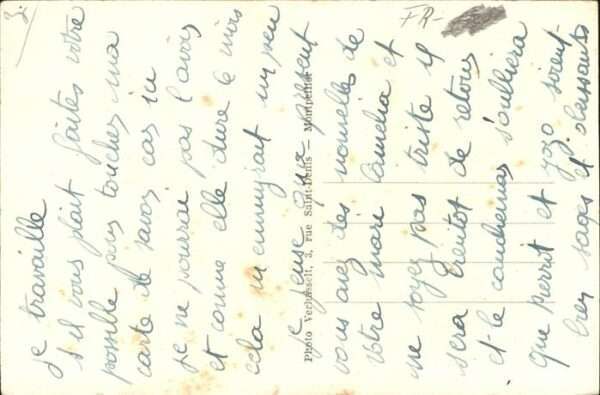 3.
FR-
je travaille
s'il vous plait faites votre
possible pour toucher ma
carte de savoi car ici
je ne pourrai pas l'avoir
et comme elle dure 6 mois
cela m'ennuyrait un peu
je pense qu'a present
vous avez des nouvelles de
votre mari Camelia et
ne soyez pas triste il
sera bientot de retour
et le cauchemar s'oulliera
que pierrot et zozo soient
bien sages et obeissants
Photo Verbusselt, 3, rue Saint-Denis — Montpellier